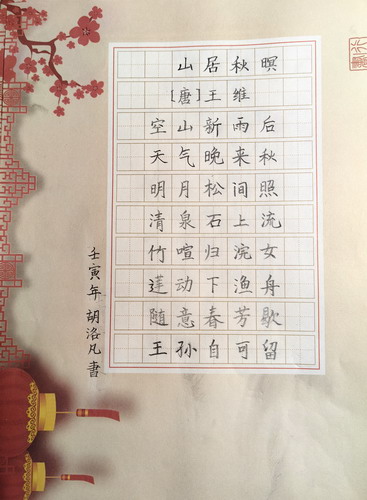 山居秋暝
[唐]王维
空山新雨后
天气晚来秋
明月松间照
清泉石上流
竹喧归浣女
莲动下渔舟
随意春芳歇
王孙自可留
壬寅年胡洛凡书